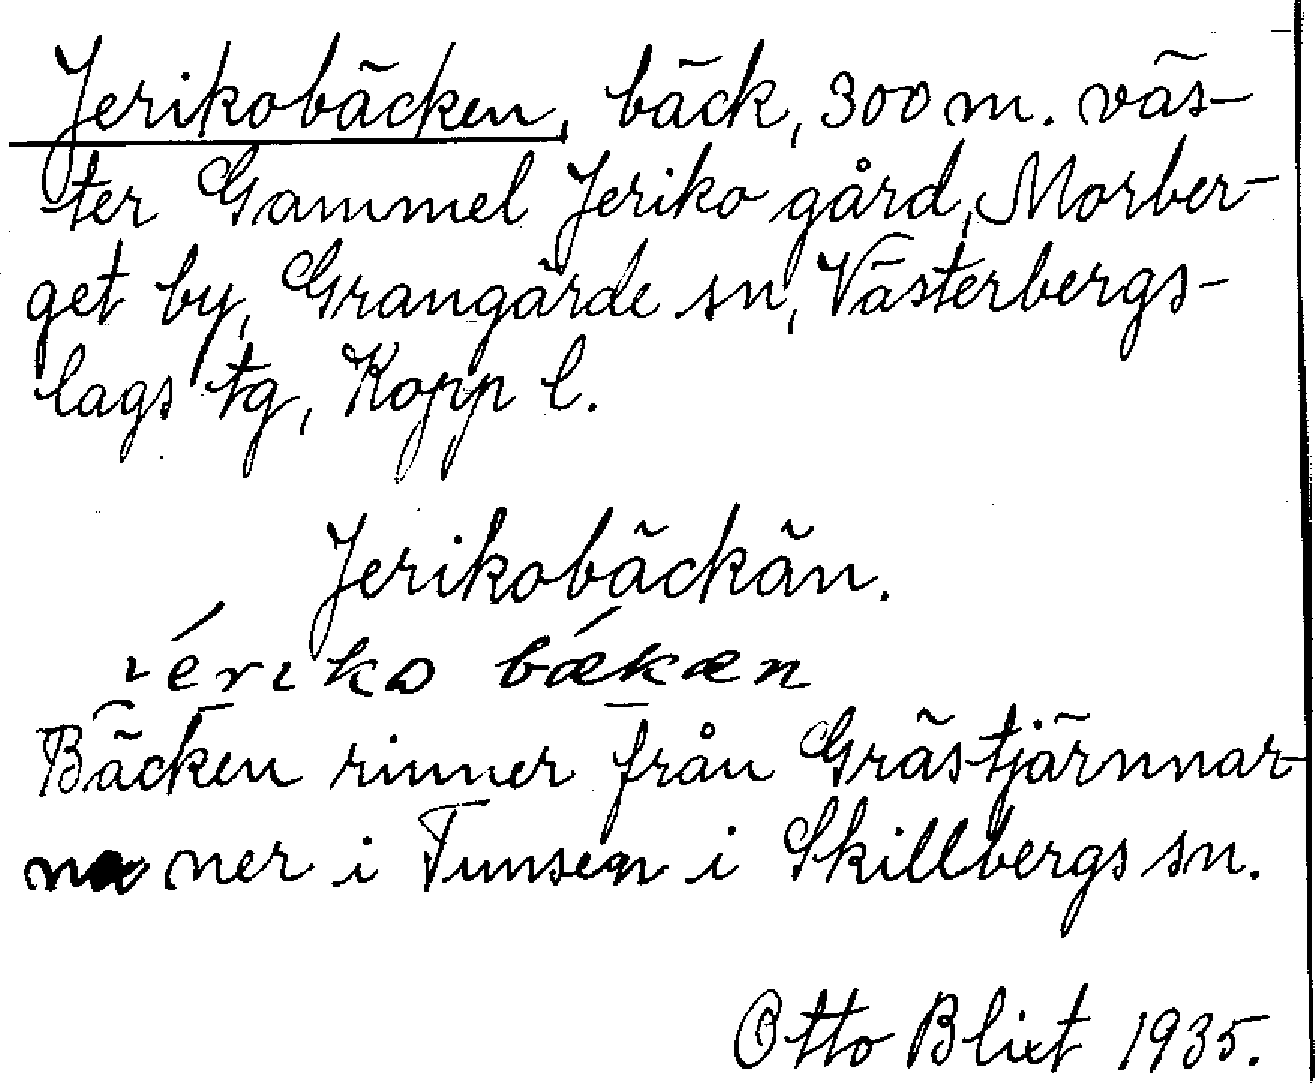 Jerikobäcken, bäck, 300 m. väs-
ter Gammel Jeriko gård, Morber-
get by, Grangärde sn, Västerbergs-
lags tg, Kopp l.
Jerikobäckän.
iériko bǽkæn
Bäcken rinner från Grästjärnnar-
na ner i Tunsen i Skillbergs sn.
Otto Blixt 1935.